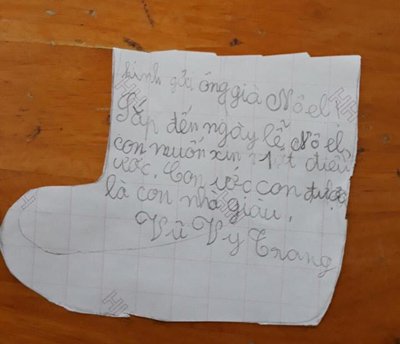 kính gửi ông già Nô el
Sắp đến ngày lễ Nô el,
con muốn xin 1 ượt điều
ước. Con ước con được
là con nhà giàu.
Vũ Vy Trang